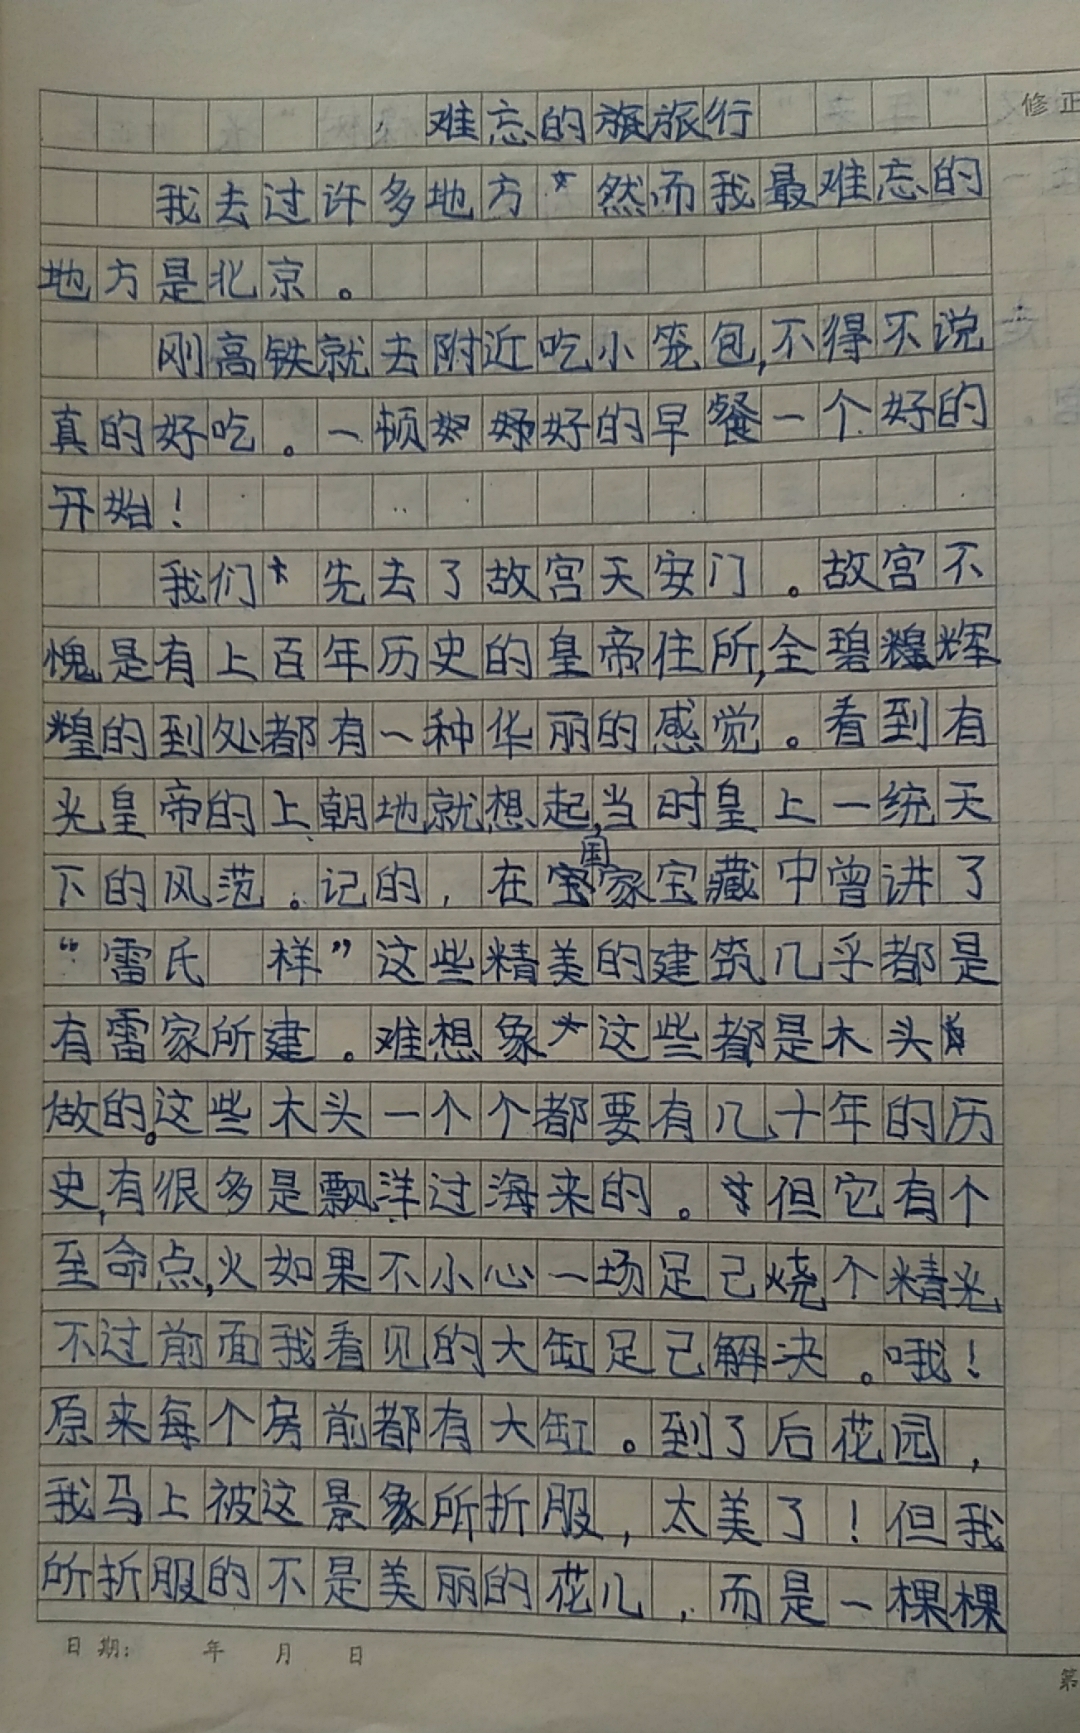 修正
难忘的旅行
我去过许多地方 然而我最难忘的
地方是北京。
刚高铁就去附近吃小笼包,不得不说
真的好吃。一顿好的早餐一个好的
开始!
我们 先去了故宫天安门。故宫不
愧是有上百年历史的皇帝住所,全碧辉
煌的到处都有一种华丽的感觉。看到有
光皇帝的上朝地就想起,当时皇上一统天
下的风范。记的,在国家宝藏中曾讲了
“雷氏 样”这些精美的建筑几乎都是
有雷家所建。难想象 这些都是木头
做的。这些木头一个个都要有几十年的历
史,有很多是飘洋过海来的。但它有个
至命点,火如果不小心一场足己烧个精光
不过前面我看见的大缸足己解决。哦!
原来每个房前都有大缸。到了后花园,
我马上被这景象所折服,太美了!但我
所折服的不是美丽的花儿,而是一棵棵
日期: 年 月 日
第